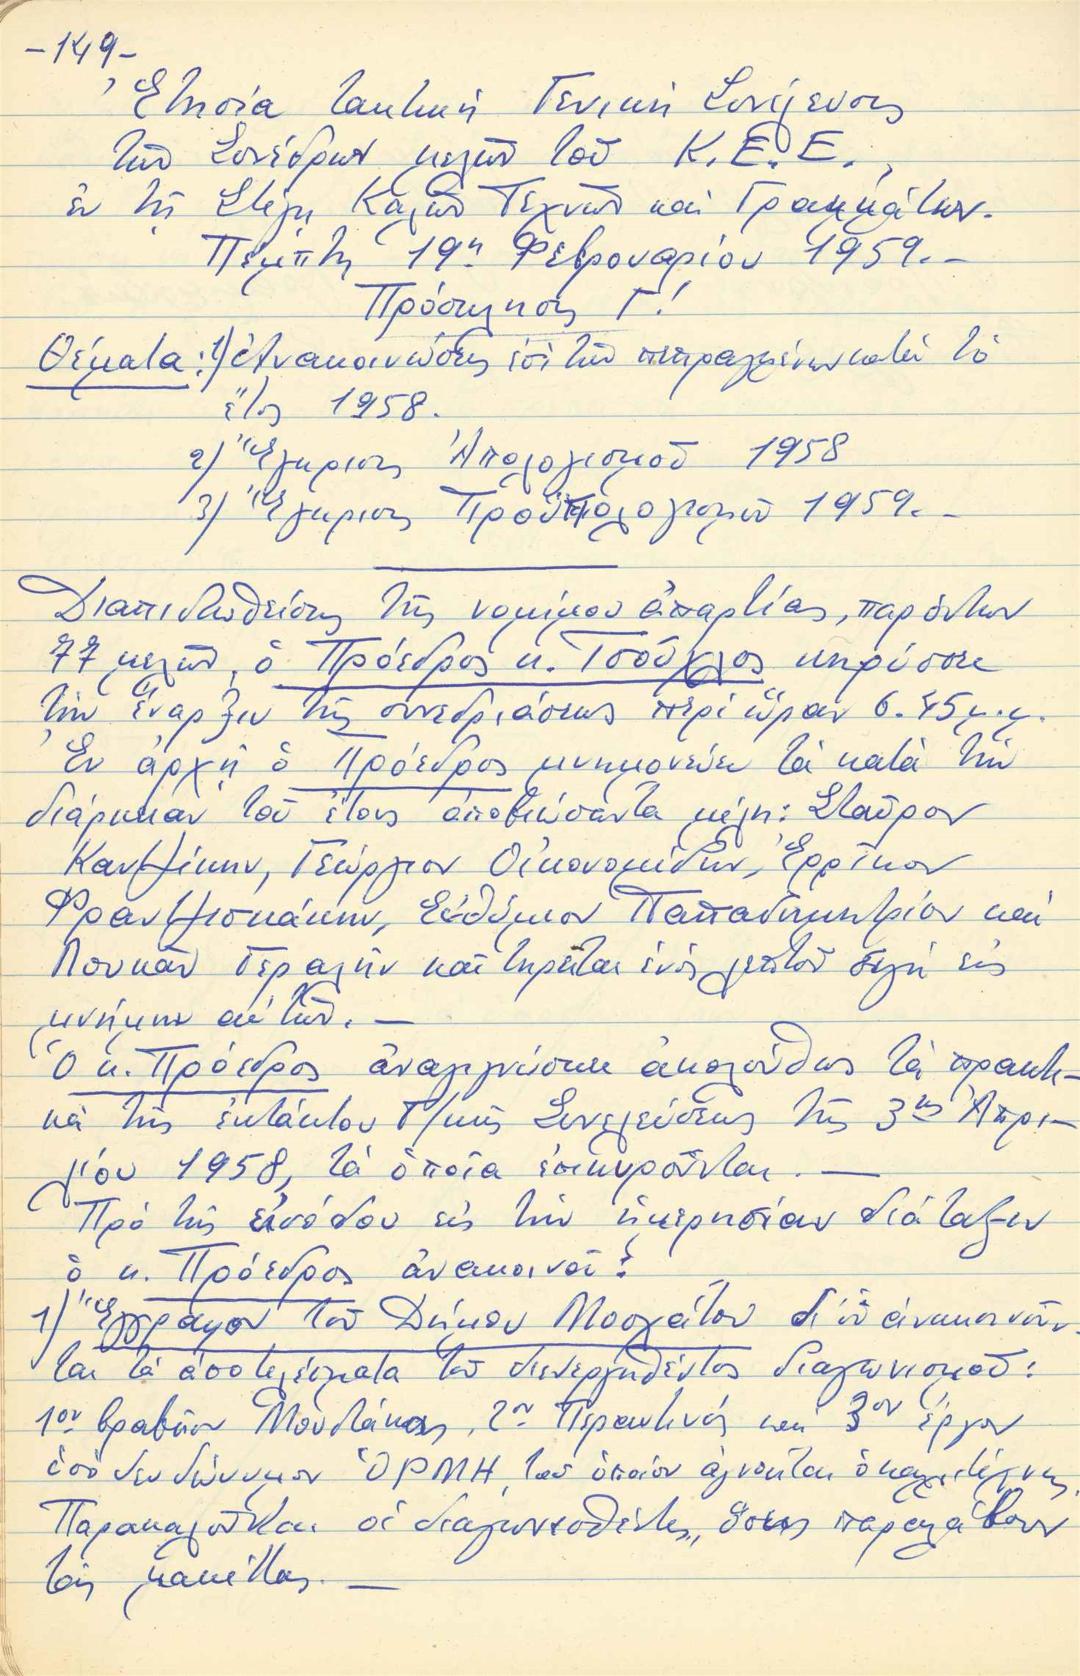 -149-
Ἐτησία τακτική Γενική Συνέλευσις
τῶν Συνέδρων μελῶν τοῦ Κ.Ε.Ε.,
ἐν τῇ Στέγῃ Καλῶν Τεχνῶν καί Γραμμάτων.
Πέμπτη 19η Φεβρουαρίου 1959.-
Πρόσκλησις Γ!
Θέματα: 1) Ἀνακοινώσεις ἐπί τῶν πεπραγμένων κατά τό
ἔτος 1958.
2) Ἔγκρισις Ἀπολογισμοῦ 1958
3) Ἔγκρισις Προϋπολογισμοῦ 1959.-
Διαπιστωθείσης τῆς νομίμου ἀπαρτίας, παρόντων
77 μελῶν, ὁ Πρόεδρος κ. Τσοῦχλος κηρύσσει
τήν ἔναρξιν τῆς συνεδριάσεως περί ὥραν 6.45 μ.μ.
Ἐν ἀρχῇ ὁ Πρόεδρος μνημονεύει τά κατά τήν
διάρκειαν τοῦ ἔτους ἀποβιώσαντα μέλη: Σταῦρον
Καντζίκην, Γεώργιον Οἰκονομίδην, Ἐρρῖκον
Φραντζισκάκην, Εὐθύμιον Παπαδημητρίου καί
Λουκᾶν Γεραλῆν καί τηρεῖται ἑνός λεπτοῦ σιγή εἰς
μνήμην αὐτῶν.-
Ὁ κ. Πρόεδρος ἀναγιγνώσκει ἀκολούθως τά πρακτι-
κά τῆς ἐκτάκτου Γ/κῆς Συνελεύσεως τῆς 3ης Ἀπρι-
λίου 1958, τά ὁποῖα ἐπικυροῦνται.-
Πρό τῆς εἰσόδου εἰς τήν ἡμερησίαν διάταξιν
ὁ κ. Πρόεδρος ἀνακοινοῖ:
1) Ἔγγραφον τοῦ Δήμου Μοσχάτου δι' οὗ ἀνακοινοῦν-
ται τά ἀποτελέσματα τοῦ διενεργηθέντος διαγωνισμοῦ:
1ον βραβεῖον Μουστάκας, 2ον Περαντινός καί 3ον ἔργον
ὑπό ψευδώνυμον ὉΡΜΗ, τοῦ ὁποίου ἀγνοεῖται ὁ καλλιτέχνης.
Παρακαλοῦνται οἱ διαγωνισθέντες, ὅπως παραλάβουν
τάς μακέττας.-